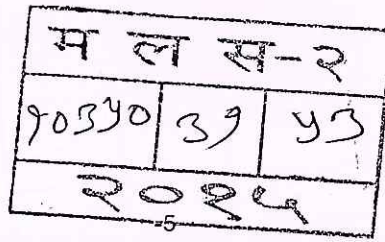 म ल स-२
१०३५० ३१ ५३
२०२५
-5